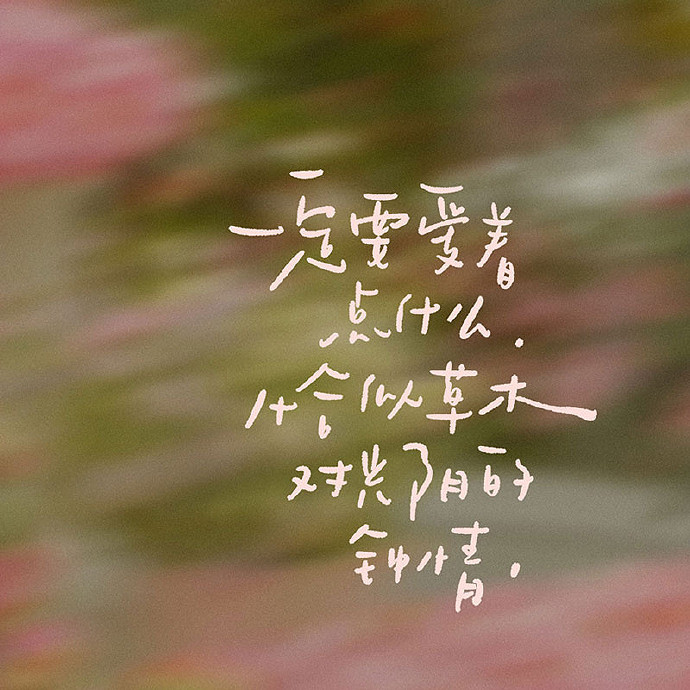 一定要爱着
点什么.
恰似草木
对光阴的
钟情.